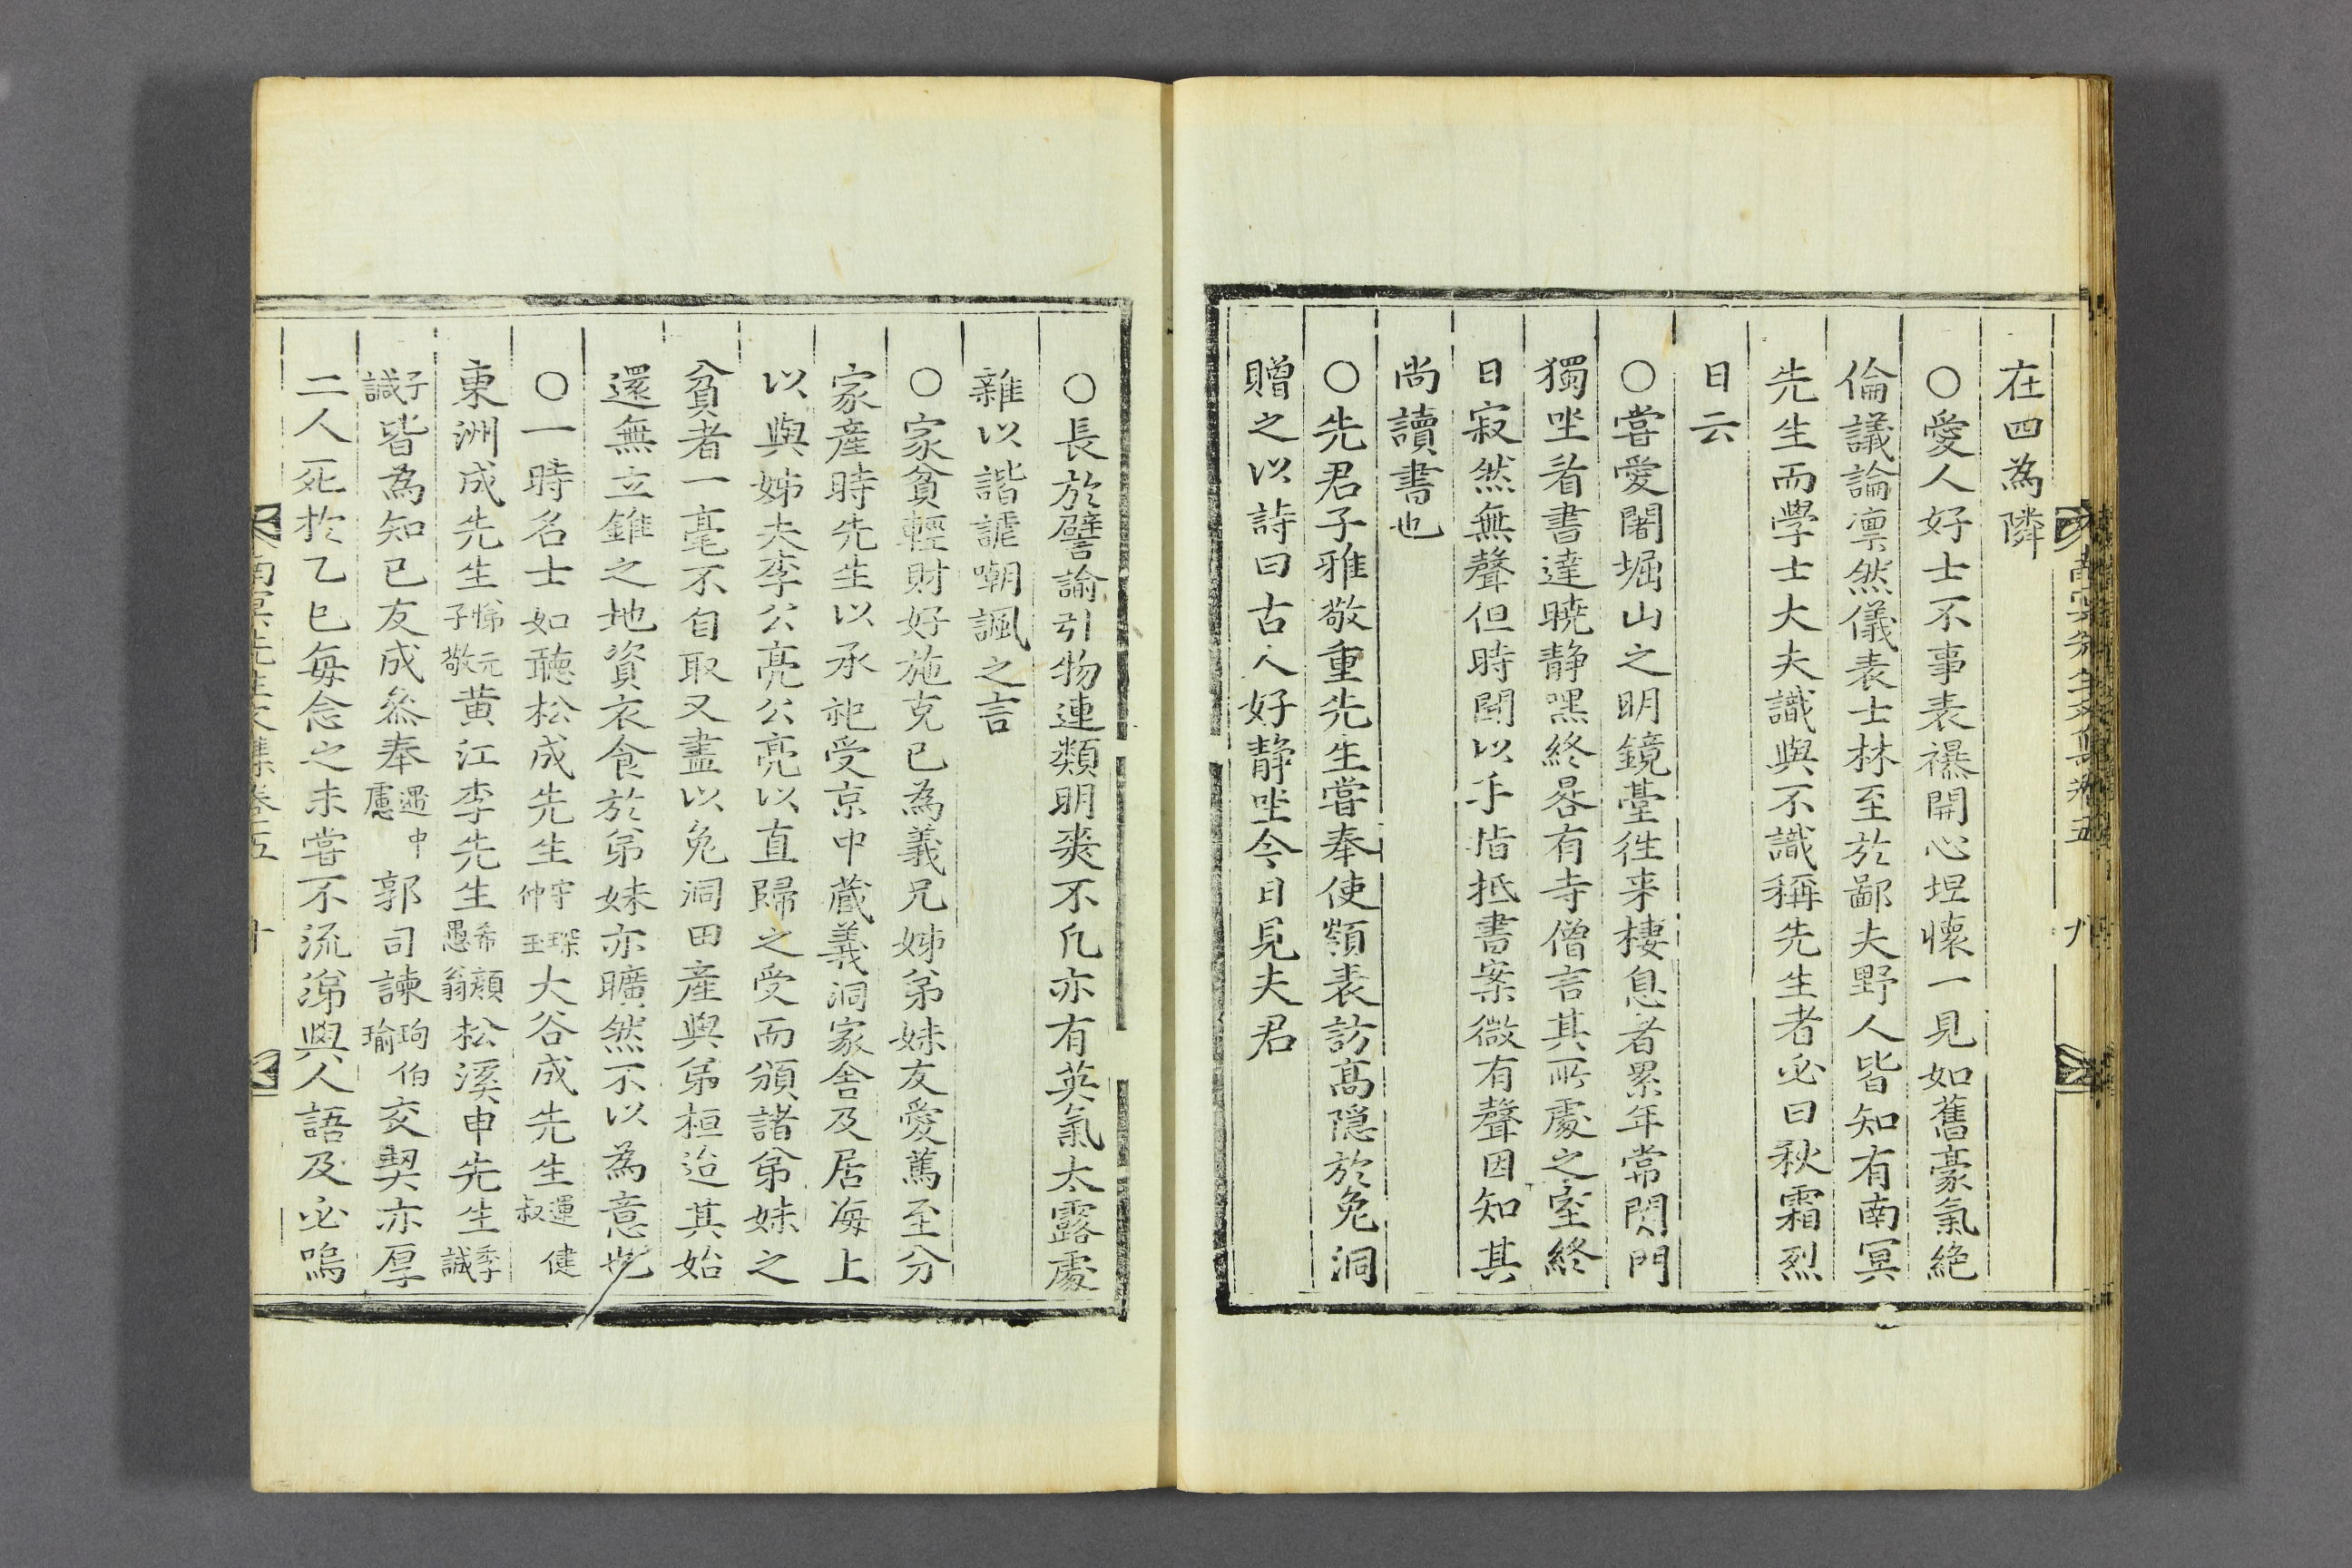 在四為隣
○愛人好士不事表襮開心坦懷一見如舊豪氣絶
倫議論凛然儀表士林至於鄙夫野人皆知有南冥
先生而學士大夫識與不識稱先生者必曰秋霜烈
日云
○嘗愛闍堀山之明鏡臺徃来棲息者累年常閉門
獨坐看書達曉静嘿終晷有寺僧言其所處之室終
日寂然無聲但時聞以手指抵書案微有聲因知其
尚讀書也
○先君子雅敬重先生嘗奉使嶺表訪髙隠於兔洞
贈之以詩曰古人好静坐今日見夫君
○長於譬諭引物連類明爽不凡亦有英氣太露處
雜以諧謔嘲諷之言
○家貧輕財好施克已為義兄姊弟妹友愛篤至分
家産時先生以承祀受京中蔵義洞家舍及居海上
以與姊夫李公亮公亮以直歸之受而頒諸弟妹之
貧者一毫不自取又盡以兔洞田産與弟桓迨其始
還無立錐之地資衣食於弟妹亦曠然不以為意也
○一時名士如聽松成先生守琛仲玉大谷成先生運健叔
東洲成先生悌元子敬黄江李先生希顔愚翁松溪申先生季誠
子諴皆為知已友成叅奉遇中慮郭司諫珣伯瑜交契亦厚
二人死於乙巳每念之未嘗不流涕與人語及必嗚